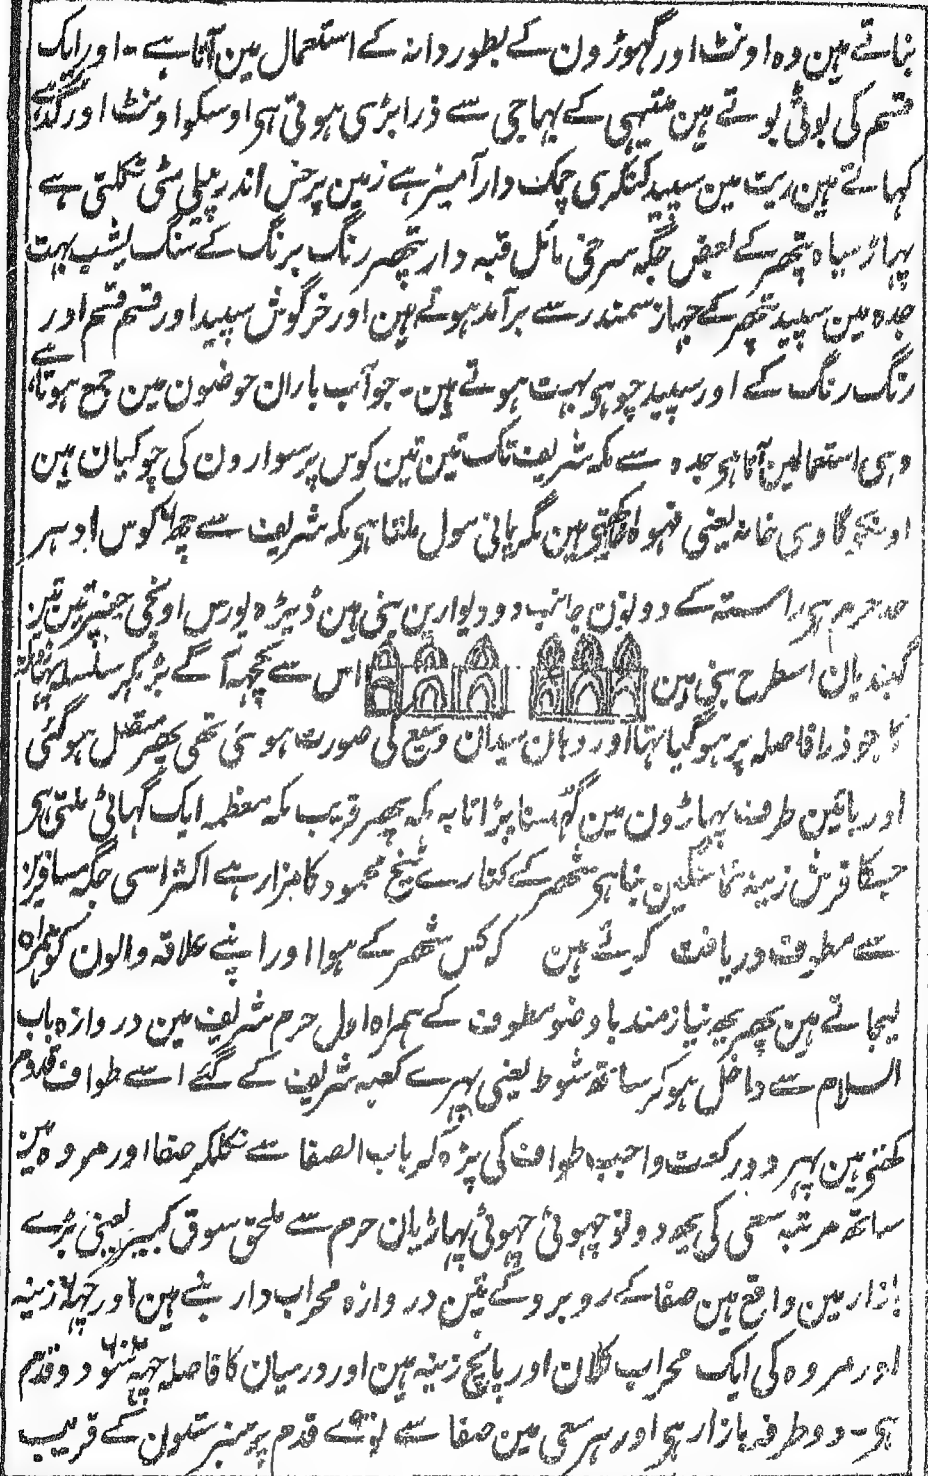 بناتے ہین وہ اونٹ اور گہوڑون کے بطور دانہ کے استعمال مین آتا ہے ۔ اور ایک
قسم کی بوٹی بوتے ہین متیہی کے پہاجی سے ذرا بڑی ہوتی ہی اوسکو اونٹ اور گدہے
کہاتے ہین ریت مین سپید کنکری چمک دار آمیز ہے زمین پر خس اندر پیلی مٹی نکلتی ہے
پہاڑ سیاہ پتھر کے بعض جگہ سرخی مائل قبہ دار پتھر رنگ برنگ کے سنگ یشب بہت
جدہ مین سپید پتھر کے جہاز سمندر سے برآمد ہوتے ہین اور خرگوش سپید اور قسم قسم اور
رنگ رنگ کے اور سپید چوہی بہت ہوتے ہین ۔ جو آب باران حوضون مین جمع ہوتا ہے
وہی استعمالمین آتا ہی جدہ سے مکہ شریف تک تین تین کوس پر سوارون کی چوکیان ہین
اونکو گاوی خانہ یعنی قہوہ خانہ کہتی ہین مگر پانی سول ملتا ہی مکہ شریف سے چھ کوس ادہر
حد حرم ہی راستہ کے دونون جانب دو دیوارین بنی ہین ڈیڑہ پورس اونچی جنپر تین تین
گنبدیان اسطرح بنی ہین اس سے کچہہ آگے بڑہکر سلسلہ پہاڑ
کا جو ذرا فاصلہ پر ہوگیا تہا اور وہان میدان وسیع کی صورت ہو گئی تھی پھر متصل ہوگئی
اور باقین طرف پہاڑون مین گہسنا پڑا تا بہ مکہ پھر قریب مکہ معظمہ ایک گہاٹی ملتی ہی
جسکا فرش زینہ نما سنگین بنا ہی شہر کے کنارے شیخ محمود کا مزار ہے اکثر اسی جگہ مسافرین
سے مطوف دریافت کرتے ہین کہ کس شہر کے ہو اور اپنے علاقہ والون کو ہمراہ
لیجاتے ہین پھر یہ نیازمند باوضو مطوف کے ہمراہ اول حرم شریف مین دروازہ باب
السلام سے داخل ہوکر ساتھ شوط یعنی پہیرے کعبہ شریف کے گئے اسے طواف قدوم
کہتی ہین پہر دو رکعت واجبہ طواف کی پڑہ کر باب الصفا سے نکلکر صفا اور مروہ مین
ساتھ مرتبہ سعی کی یہ دونو چہوٹی چہوٹی پہاڑیان حرم سے ملحق سوق کبیر یعنی بڑے
بازار مین واقع ہین صفا کے روبرو کے تین دروازہ محراب دار بنے ہین اور زینہ
اور مروہ کی ایک محراب کلان اور پانچ زینہ ہین اور درمیان کا فاصلہ دو قدم
ہی ۔ دو طرفہ بازار ہی اور ہر سعی مین صفا سے نوے قدم پر سبز ستون کے قریب